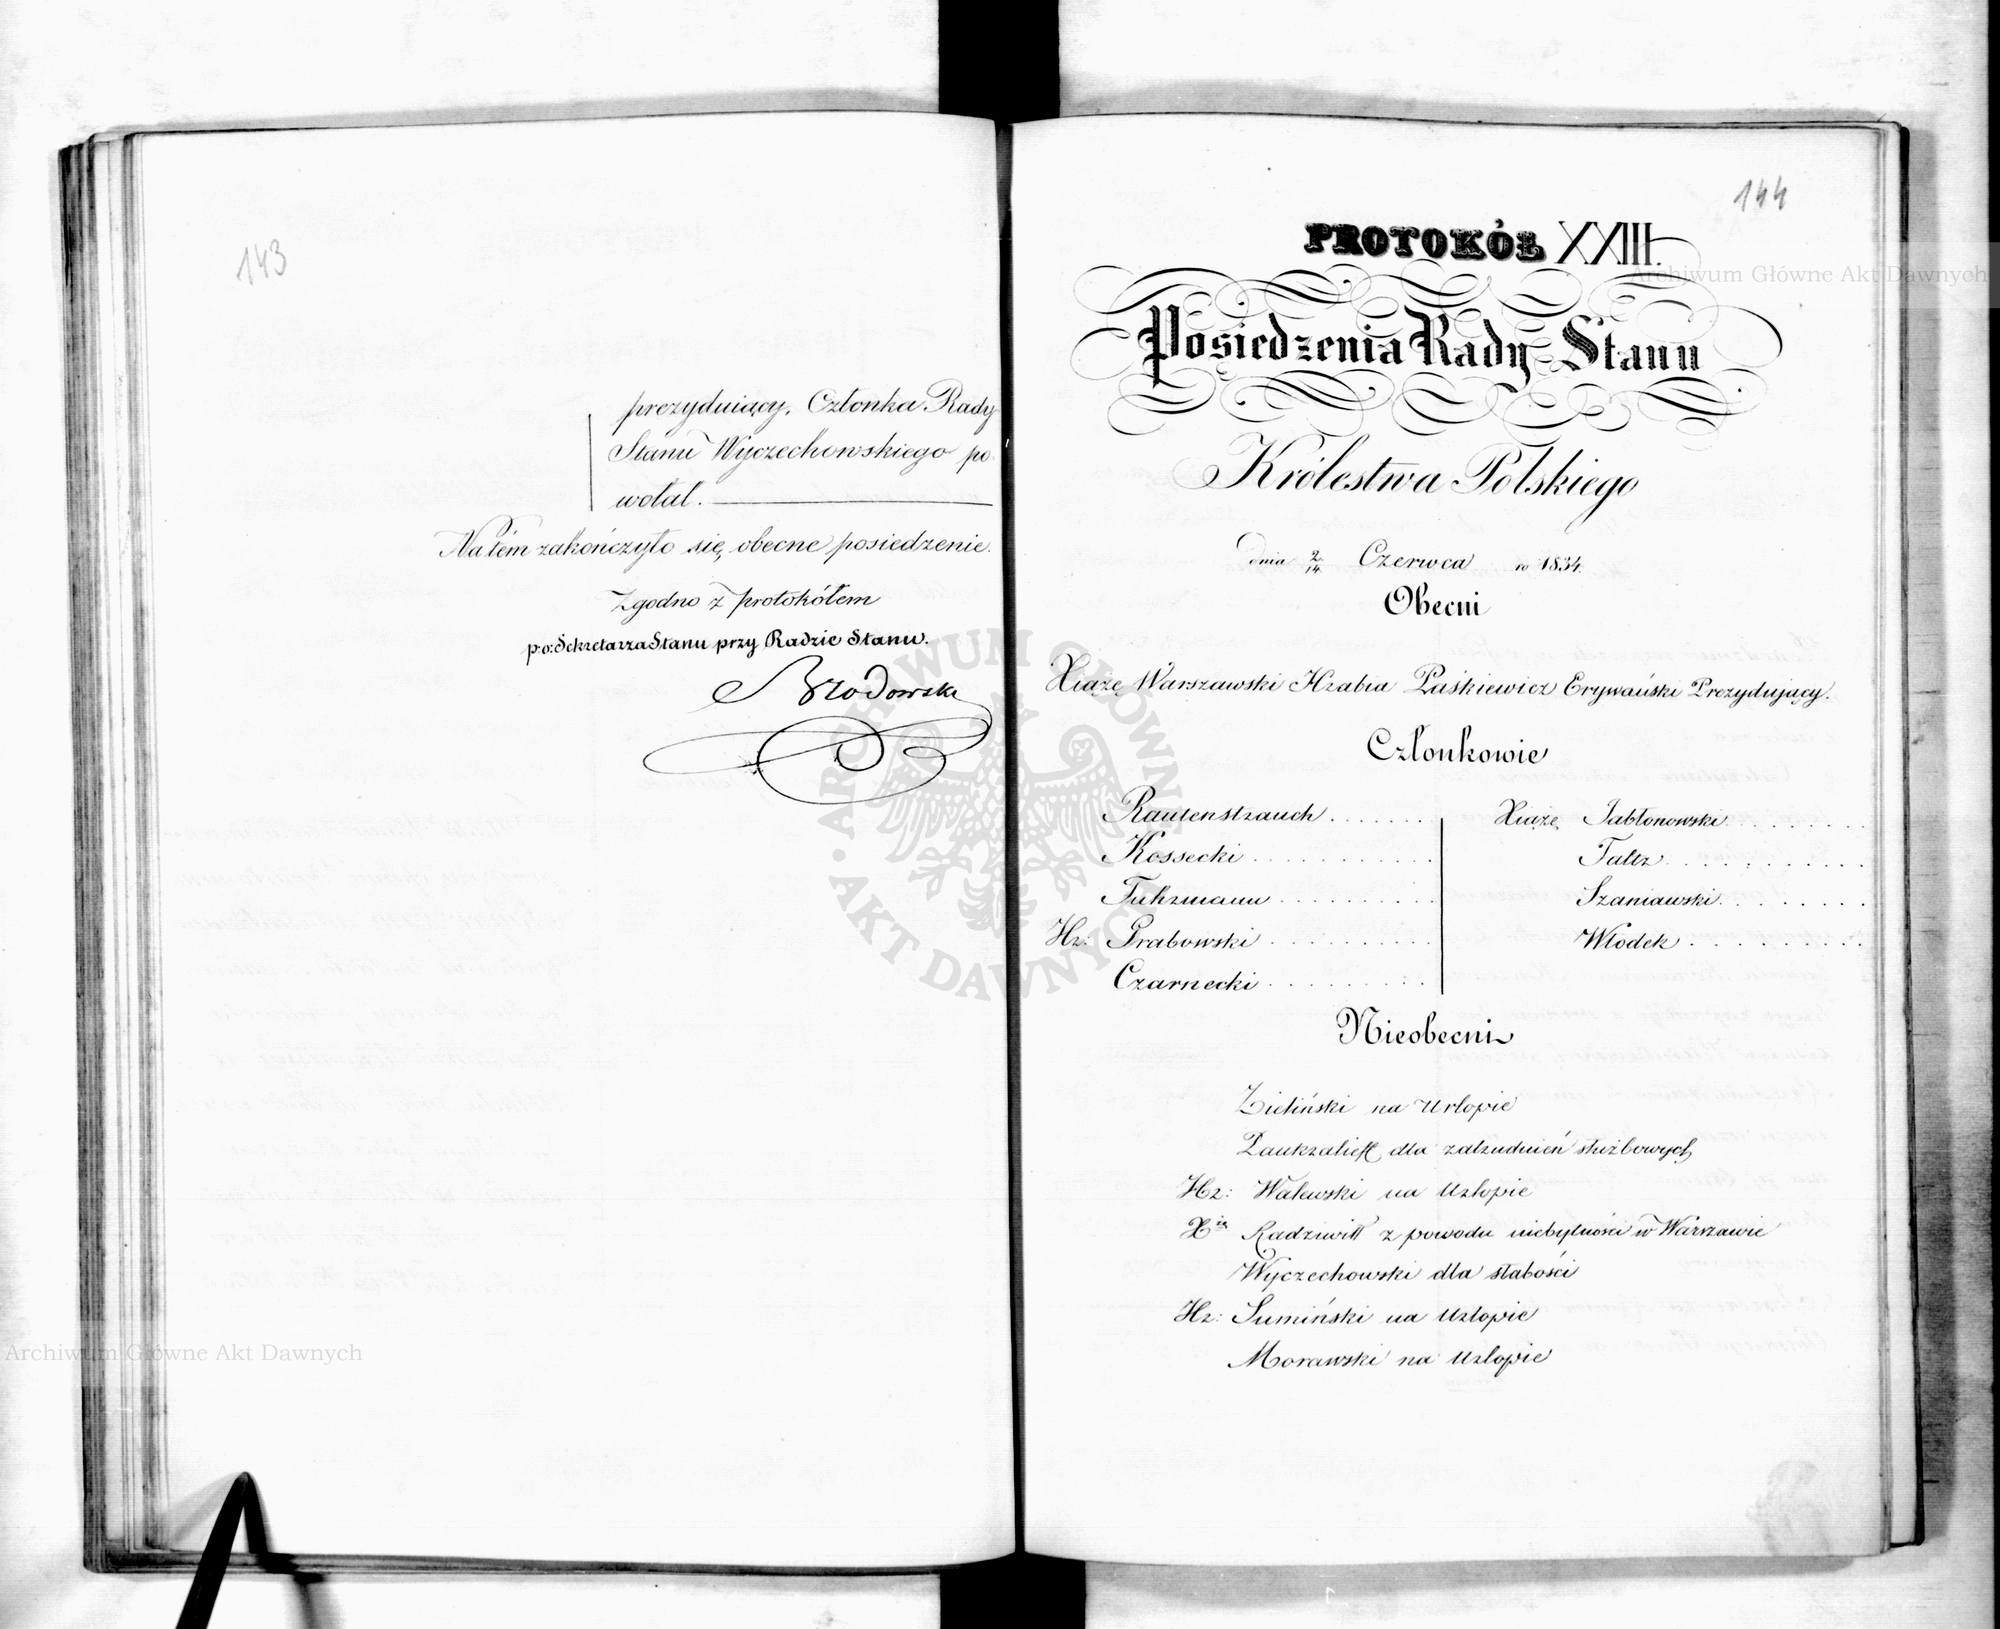 143
prezyduiący, Członka Rady
Stanu Wyczechowskiego po-
wołał.
Na tém zakończyło się obecne posiedzenie.
Zgodno z protokółem
p.o: Sekretarza Stanu przy Radzie Stanu.
Brodowski
144
PROTOKÓŁ XXIII.
Posiedzenia Rady Stanu
Królestwa Polskiego
dnia 2/14. Czerwca r. 1834.
Obecni
Xiążę Warszawski Hrabia Paśkiewicz Erywański Prezydujący.
Członkowie
Rautenstrauch
Kossecki
Fuhrmann
Hr: Grabowski
Czarnecki
Xiążę Jabłonowski
Faltz
Szaniawski
Włodek
Nieobecni
Zieliński na Urlopie
dla zatrudnień służbowych
Hr: Walewski na Urlopie
Xię Radziwiłł z powodu niebytności w Warszawie
Wyczechowski dla słabości
Hr: Sumiński na Urlopie
Morawski na Urlopie
Archiwum Główne Akt Dawnych
Archiwum Główne Akt Dawnych
ARCHIWUM GŁÓWNE
AKT DAWNYCH